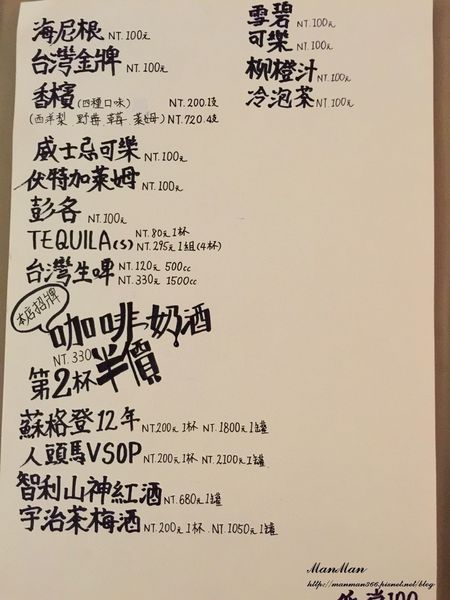 海尼根 NT.100元
台灣金牌 NT.100元
香檳(四種口味) NT.200.1支
(西洋梨 野莓.草莓.萊姆) NT.720.4支
威士忌可樂 NT.100元
伏特加萊姆 NT.100元
彭各 NT.100元
TEQUILA(s) NT.80元1杯
NT.295元1組(4杯)
台灣生啤 NT.120元 500cc
NT.330元 1500cc
本店招牌
咖啡奶酒
NT.330
第2杯半價
蘇格登12年 NT.200元1杯 NT.1800元1罐
人頭馬VSOP NT.200元1杯 NT.2100元1罐
智利山神紅酒 NT.680元1罐
宇治茶梅酒 NT.200元1杯. NT.1050元1罐
雪碧 NT.100元
可樂 NT.100元
柳橙汁 NT.100元
冷泡茶 NT.100元
ManMan
http://manman366.pixnet.net/blog